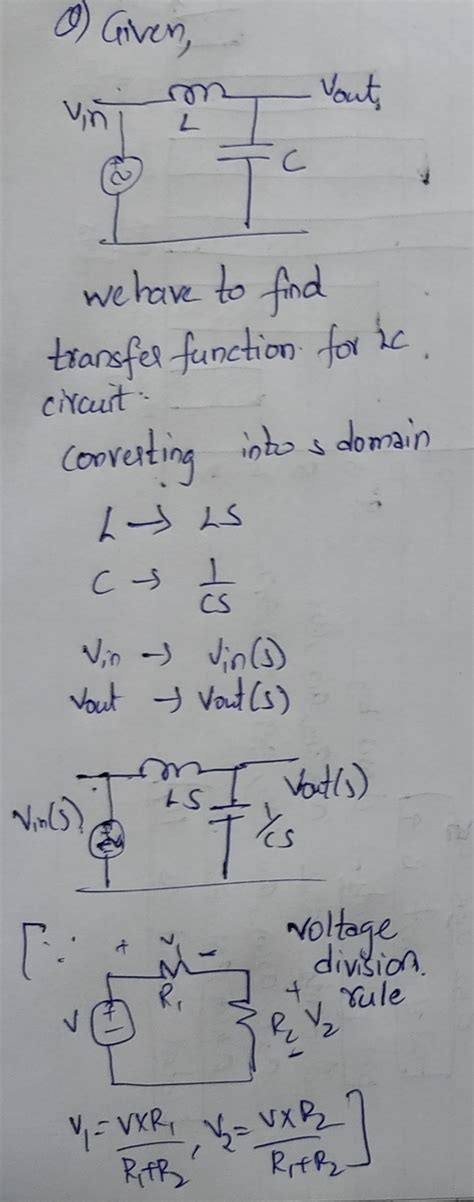 Q) Given,
Vin
L
Vout,
C
we have to find
transfer function for LC
circuit:
converting into s domain
L → LS
C → 1/CS
Vin → Vin(s)
Vout → Vout(s)
Vin(s)
LS
Vout(s)
1/CS
[∵
voltage
division
rule
+ V1 -
R1
V
+
R2 V2
-
V1 = V×R1/R1+R2, V2 = V×R2/R1+R2 ]